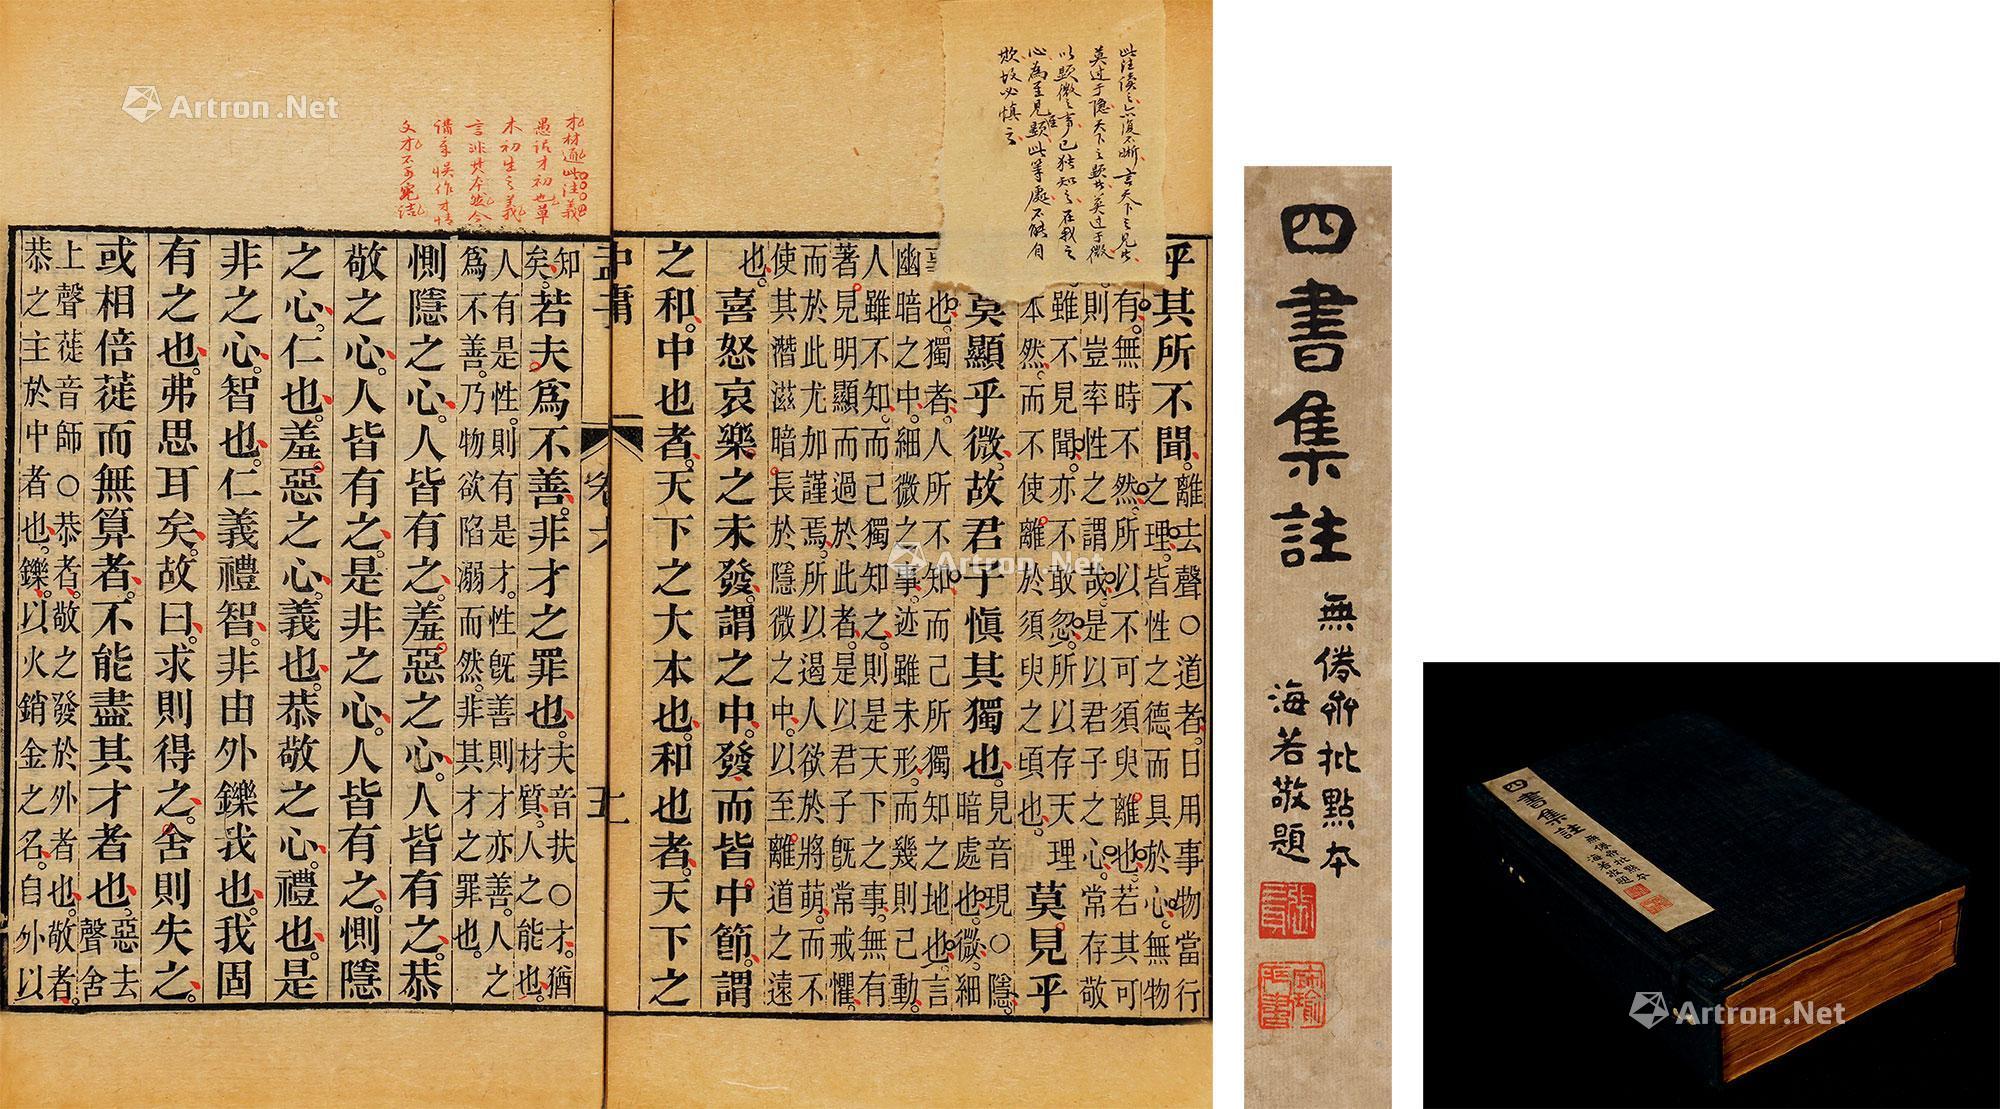 此注讀之亦復不晰言天下之見者
莫过于隐天下之顯者莫过于微
以顯微之事己獨知之在我之
心為至見至顯此等處不能自
欺故必慎之
乎其所不聞離去聲○道者日用事物當行
之理皆性之德而具於心無物
有無時不然所以不可須臾離也若其可
則豈率性之謂哉是以君子之心常存敬
雖不見聞亦不敢忽所以存天理
本然而不使離於須臾之頃也
莫見乎
莫顯乎微故君子慎其獨也見音現○隱
暗處也微細
也獨者人所不知而己所獨知之地也言
幽暗之中細微之事迹雖未形而幾則已動
人雖不知而己獨知之則是天下之事無有
著見明顯而過於此者是以君子既常戒懼
而於此尤加謹焉所以遏人欲於將萌而不
使其潛滋暗長於隱微之中以至離道之遠
也
喜怒哀樂之未發謂之中發而皆中節謂
之和中也者天下之大本也和也者天下之
五
才材通此注義
愚謂才初也草
木初生之義
言非其本然今
諸家误作才情
之才不可究诘
知
矣若夫為不善非才之罪也夫音扶○才猶
材質人之能也
人有是性則有是才性既善則才亦善人之
為不善乃物欲陷溺而然非其才之罪也
惻隱之心人皆有之羞惡之心人皆有之恭
敬之心人皆有之是非之心人皆有之惻隱
之心仁也羞惡之心義也恭敬之心禮也是
非之心智也仁義禮智非由外鑠我也我固
有之也弗思耳矣故曰求則得之舍則失之
或相倍蓰而無算者不能盡其才者也惡去
聲舍
上聲蓰音師○恭者敬之發於外者也敬者
恭之主於中者也鑠以火銷金之名自外以
四書集註
無倦齋批點本
海若敬題
四書集註
無倦齋批點本
海若敬題
Artron.Net
Artron.Net
Artron.Net